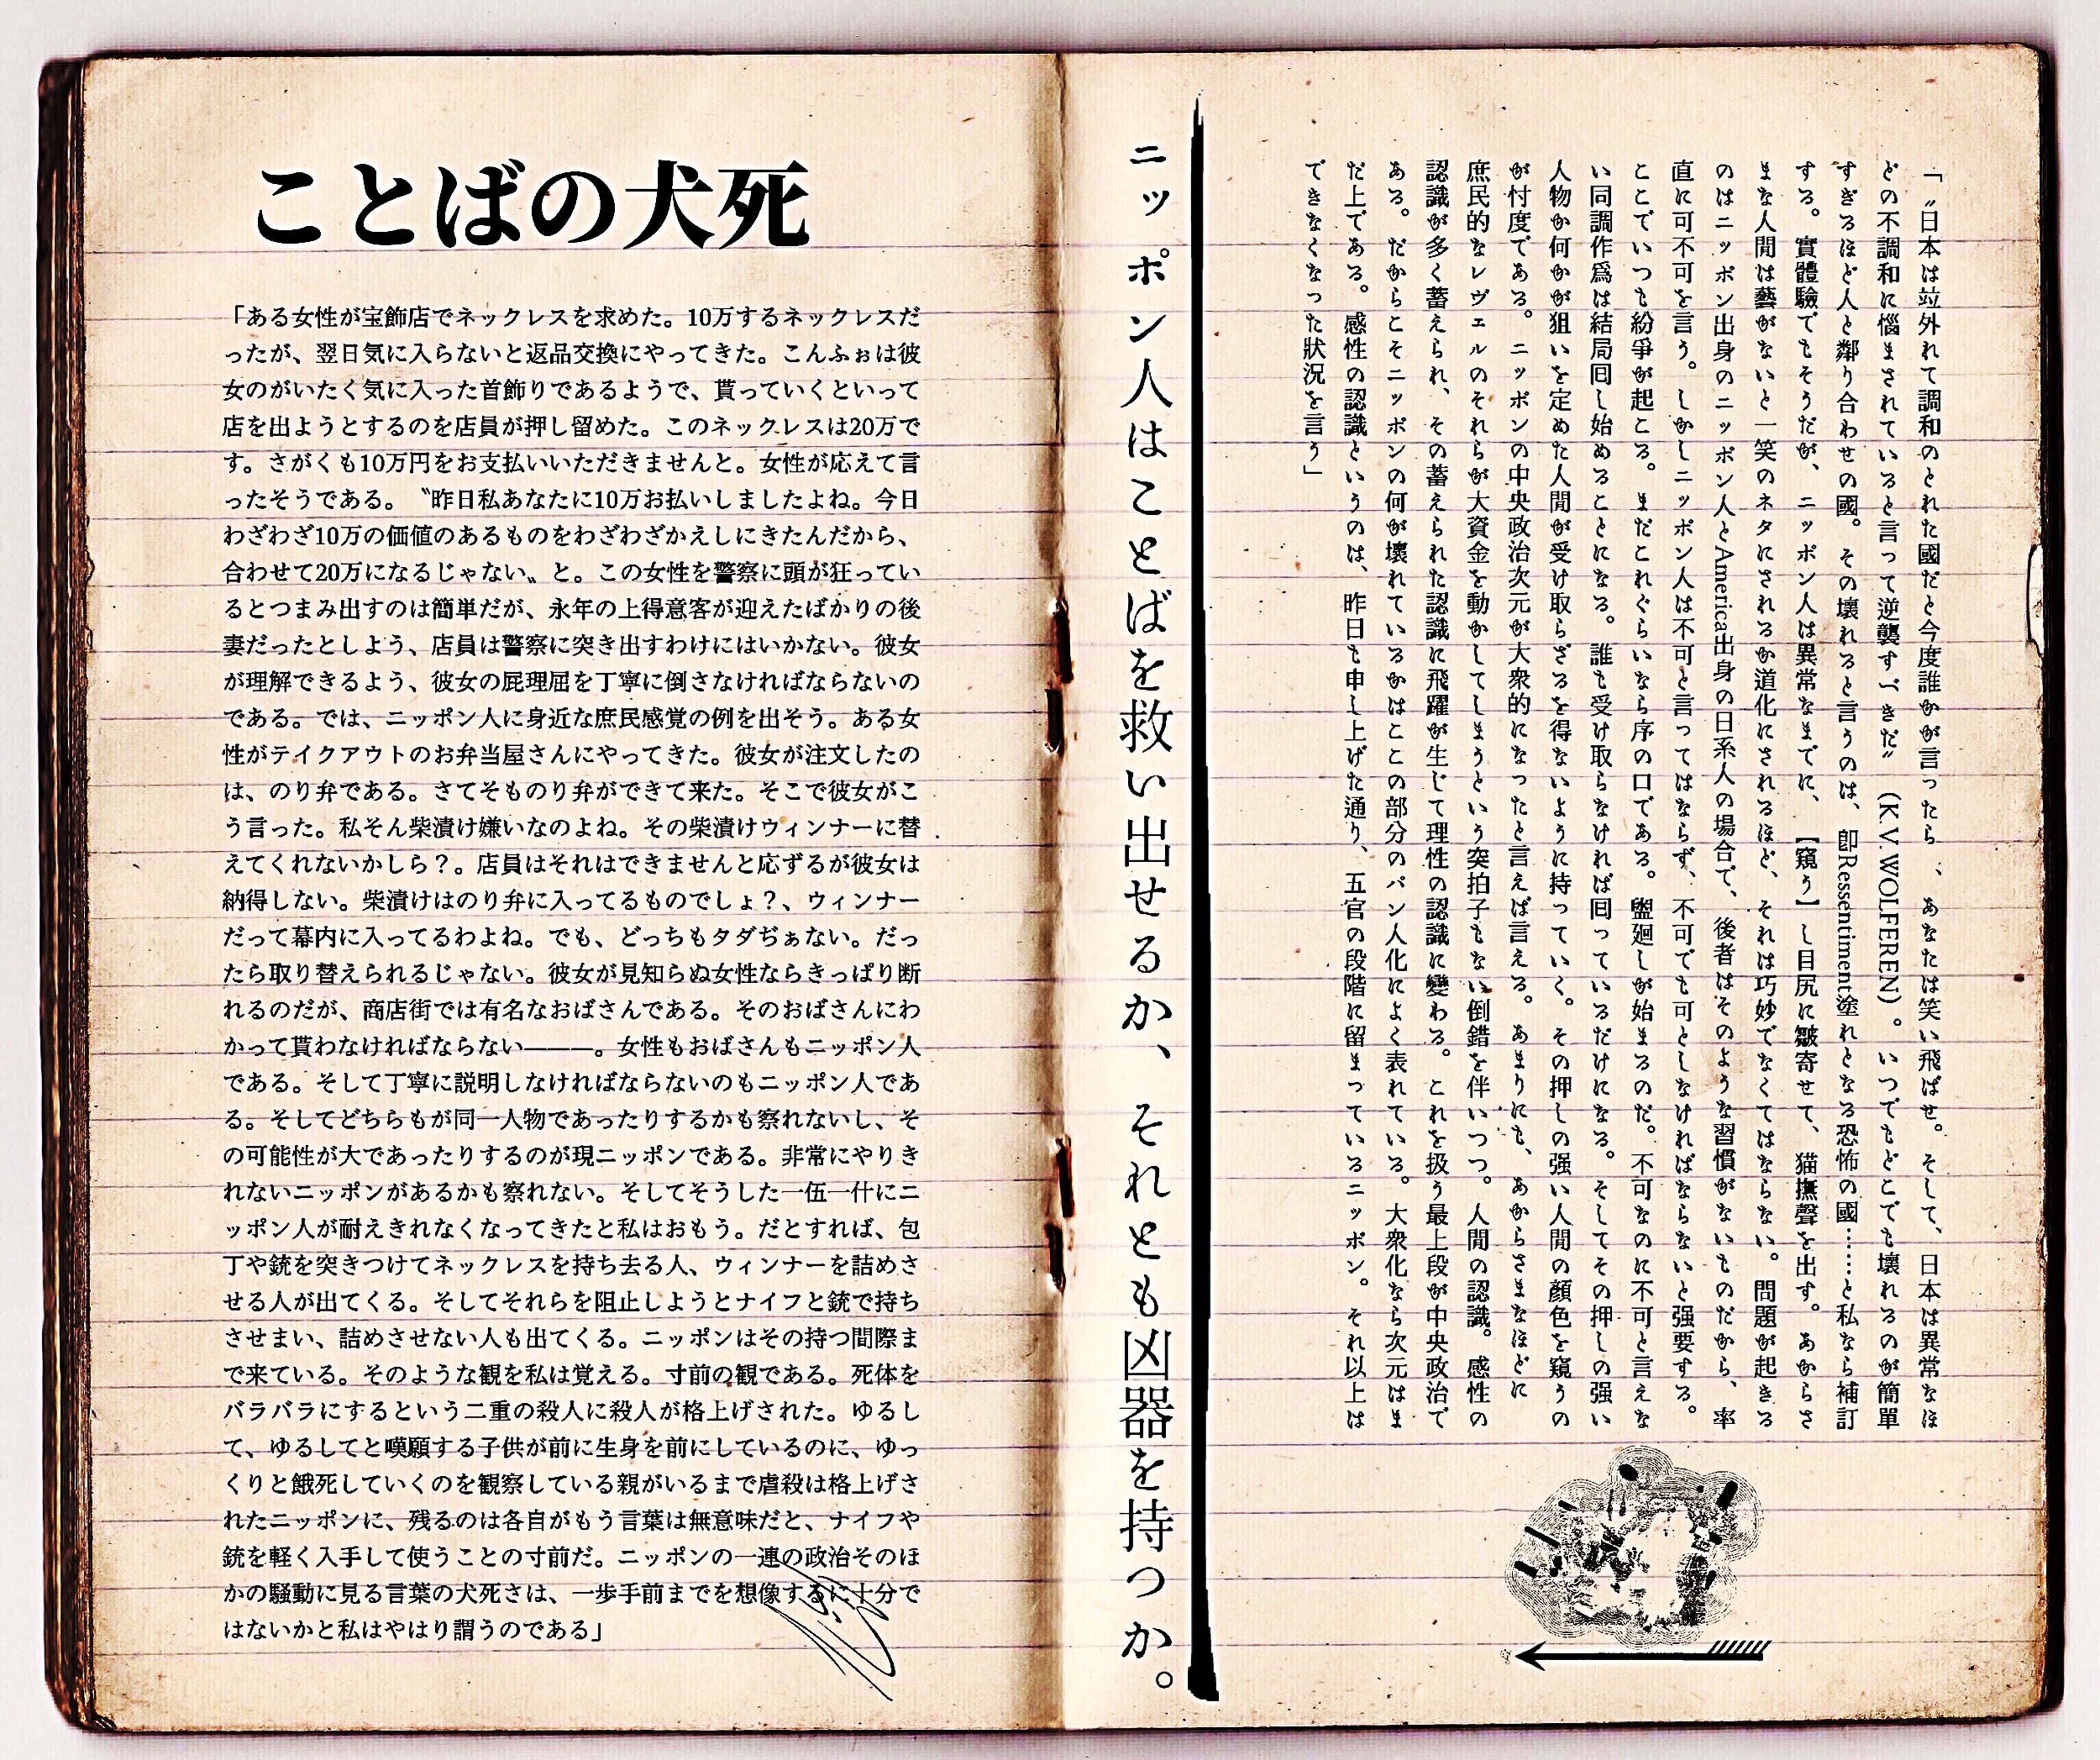 ことばの犬死
「ある女性が宝飾店でネックレスを求めた。10万するネックレスだ
ったが、翌日気に入らないと返品交換にやってきた。こんふぉは彼
女のがいたく気に入った首飾りであるようで、貰っていくといって
店を出ようとするのを店員が押し留めた。このネックレスは20万で
す。さがくも10万円をお支払いいただきませんと。女性が応えて言
ったそうである。〝昨日私あなたに10万お払いしましたよね。今日
わざわざ10万の価値のあるものをわざわざかえしにきたんだから、
合わせて20万になるじゃない〟と。この女性を警察に頭が狂ってい
るとつまみ出すのは簡単だが、永年の上得意客が迎えたばかりの後
妻だったとしよう、店員は警察に突き出すわけにはいかない。彼女
が理解できるよう、彼女の屁理屈を丁寧に倒さなければならないの
である。では、ニッポン人に身近な庶民感覚の例を出そう。ある女
性がテイクアウトのお弁当屋さんにやってきた。彼女が注文したの
は、のり弁である。さてそものり弁ができて来た。そこで彼女がこ
う言った。私そん柴漬け嫌いなのよね。その柴漬けウィンナーに替
えてくれないかしら？。店員はそれはできませんと応ずるが彼女は
納得しない。柴漬けはのり弁に入ってるものでしょ？、ウィンナー
だって幕内に入ってるわよね。でも、どっちもタダぢぁない。だっ
たら取り替えられるじゃない。彼女が見知らぬ女性ならきっぱり断
れるのだが、商店街では有名なおばさんである。そのおばさんにわ
かって貰わなければならない———。女性もおばさんもニッポン人
である。そして丁寧に説明しなければならないのもニッポン人であ
る。そしてどちらもが同一人物であったりするかも察れないし、そ
の可能性が大であったりするのが現ニッポンである。非常にやりき
れないニッポンがあるかも察れない。そしてそうした一伍一什にニ
ッポン人が耐えきれなくなってきたと私はおもう。だとすれば、包
丁や銃を突きつけてネックレスを持ち去る人、ウィンナーを詰めさ
せる人が出てくる。そしてそれらを阻止しようとナイフと銃で持ち
させまい、詰めさせない人も出てくる。ニッポンはその持つ間際ま
で来ている。そのような観を私は覚える。寸前の観である。死体を
バラバラにするという二重の殺人に殺人が格上げされた。ゆるし
て、ゆるしてと嘆願する子供が前に生身を前にしているのに、ゆっ
くりと餓死していくのを観察している親がいるまで虐殺は格上げさ
れたニッポンに、残るのは各自がもう言葉は無意味だと、ナイフや
銃を軽く入手して使うことの寸前だ。ニッポンの一連の政治そのほ
かの騒動に見る言葉の犬死さは、一歩手前までを想像するに十分で
はないかと私はやはり謂うのである」
ニッポン人はことばを救い出せるか、それとも凶器を持つか。
「〝日本は竝外れて調和のとれた國だと今度誰かが言ったら、、あなたは笑い飛ばせ。そして、日本は異常なほ
どの不調和に惱まされていると言って逆襲すべきだ〟(K.V. WOLFEREN)。いつでもどこでも壊れるのが簡單
すぎるほど人と鄰り合わせの國。その壊れると言うのは、卽Ressentiment塗れとなる恐怖の國……と私なら補訂
する。實體驗でもそうだが、ニッポン人は異常なまでに、【窺う】し目尻に皺寄せて、猫撫聲を出す。あからさ
まな人間は藝がないと一笑のネタにされるか道化にされるほど、それは巧妙でなくてはならない。問題が起きる
のはニッポン出身のニッポン人とAmerica出身の日系人の場合で、後者はそのような習慣がないものだから、率
直に可不可を言う。しかしニッポン人は不可と言ってはならず、不可でも可としなければならないと强要する。
ここでいつも紛爭が起こる。まだこれぐらいなら序の口である。盥廻しが始まるのだ。不可なのに不可と言えな
い同調作爲は結局囘し始めることになる。誰も受け取らなければ囘っているだけになる。そしてその押しの强い
人物か何かが狙いを定めた人間が受け取らざるを得ないように持っていく。その押しの强い人間の顔色を窺うの
が忖度である。ニッポンの中央政治次元が大衆的になったと言えば言える。あまりにも、あからさまなほどに
庶民的なレヴェルのそれらが大資金を動かしてしまうという突拍子もない倒錯を伴いつつ。人間の認識。感性の
認識が多く蓄えられ、その蓄えられた認識に飛躍が生じて理性の認識に變わる。これを扱う最上段が中央政治で
ある。だからこそニッポンの何が壊れているかはここの部分のパン人化によく表れている。大衆化なら次元はま
だ上である。感性の認識というのは、昨日も申し上げた通り、五官の段階に留まっているニッポン。それ以上は
できなくなった狀況を言う」